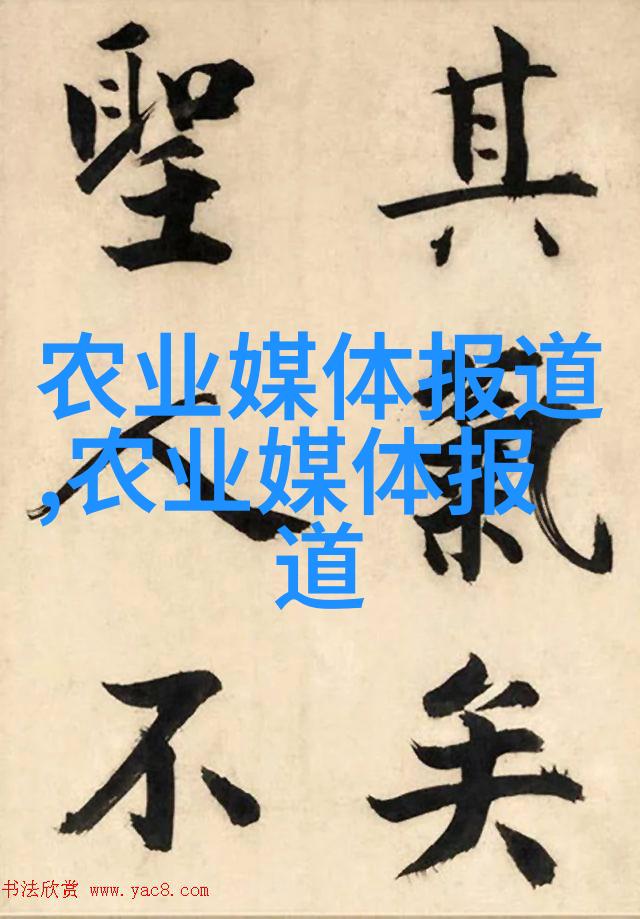 其氣矣
聖人不
农业媒体报道
,农业媒体报
道
书法欣赏 www.yac8.com